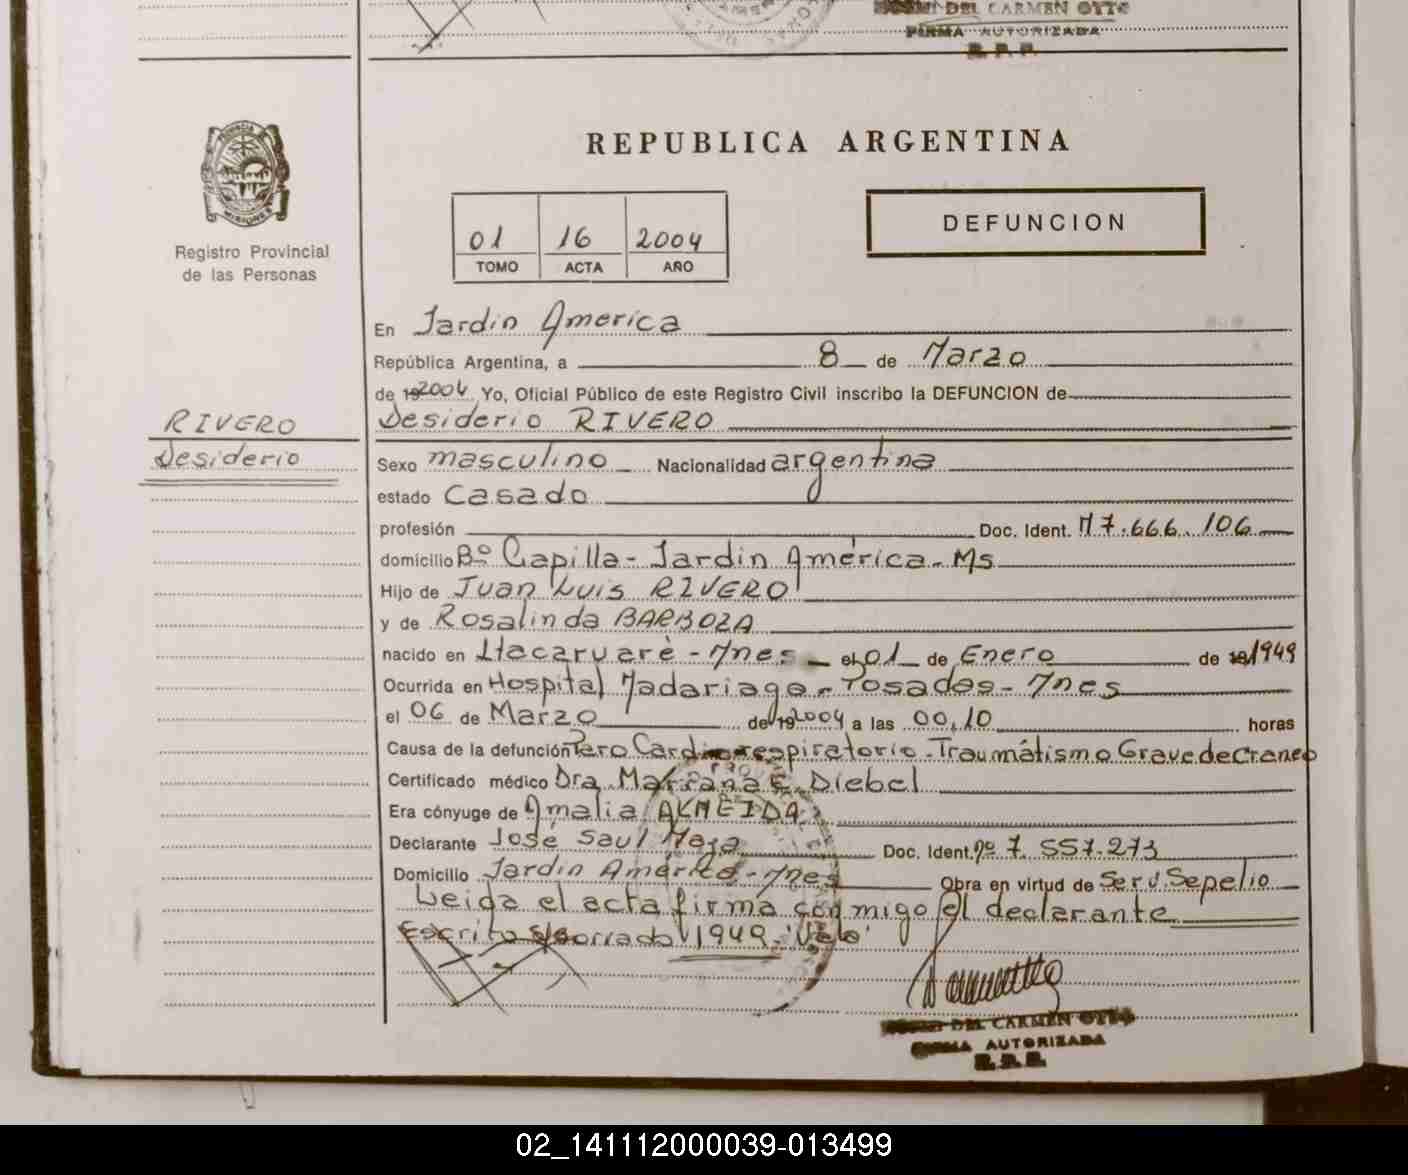 DEL CARMEN OTTO
FIRMA AUTORIZADA
R. P. P.
PROVINCIA DE
MISIONES
Registro Provincial
de las Personas
REPUBLICA ARGENTINA
01 16 2004
TOMO ACTA AÑO
DEFUNCION
En Jardin America
República Argentina, a 8 de Marzo
de 19 2004 Yo, Oficial Público de este Registro Civil inscribo la DEFUNCION de
RIVERO
Desiderio RIVERO
Desiderio
Sexo masculino Nacionalidad argentina
estado Casado
profesión Doc. Ident. M 7.666.106
domicilio Bº Capilla - Jardin América - Ms
Hijo de Juan Luis RIVERO
y de Rosalinda BARBOZA
nacido en Itacaruaré - Mnes el 01 de Enero de 19 1949
Ocurrida en Hospital Madariaga - Posadas - Mnes
el 06 de Marzo de 19 2004 a las 00,10 horas
Causa de la defunción Paro Cardiorespiratorio - Traumátismo Grave de Craneo
Certificado médico Dra. Mariana E. Diebel
Era cónyuge de Amalia ALMEIDA
Declarante José Saul Doc. Ident. nº 7.557.273
Domicilio Jardin América - Mnes Obra en virtud de Serv. Sepelio
Leida el acta firma conmigo el declarante
Escrito s/borrado 1949 - 'Vale'
DEL CARMEN OTTO
FIRMA AUTORIZADA
R. P. P.
02_141112000039-013499